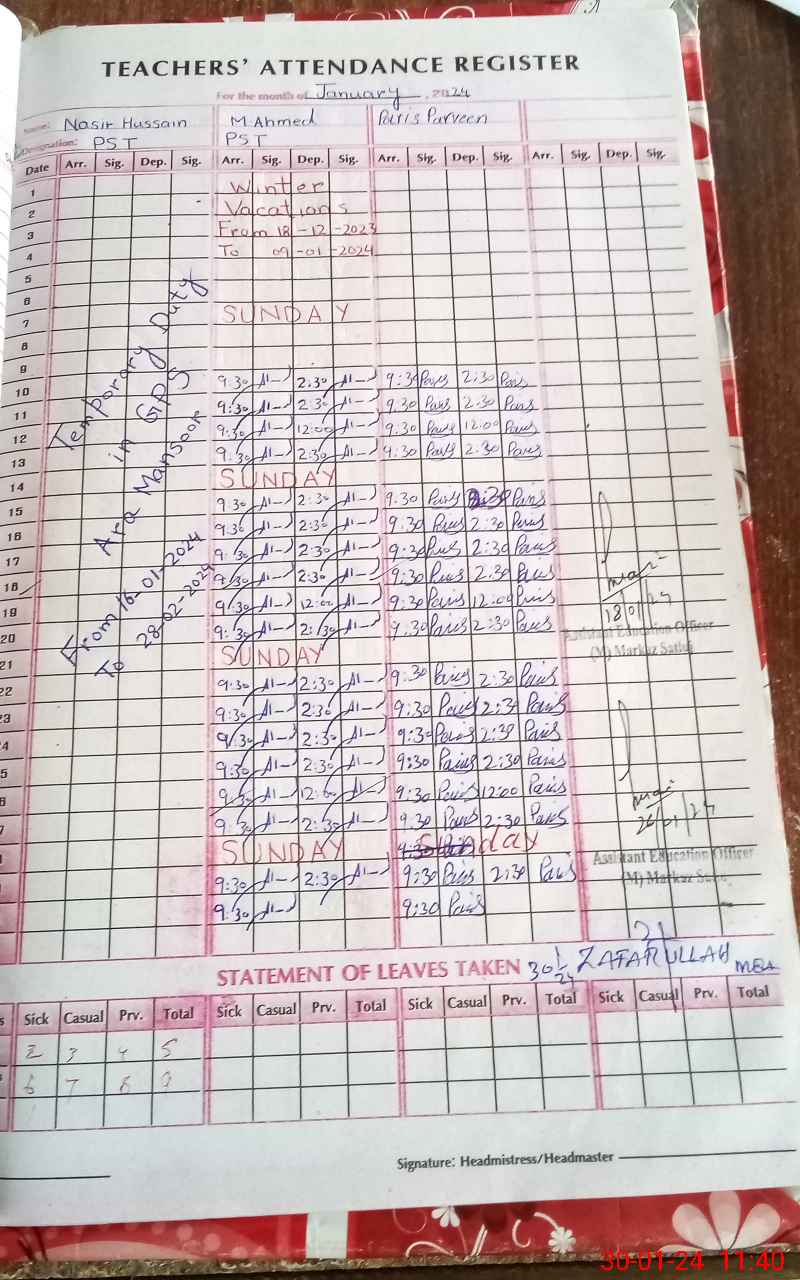 TEACHERS' ATTENDANCE REGISTER
For the month of January, 2024
Name: Nasir Hussain M. Ahmed Paris Parveen
Designation: PST PST
Date Arr. Sig. Dep. Sig. Arr. Sig. Dep. Sig. Arr. Sig. Dep. Sig. Arr. Sig. Dep. Sig.
1 Winter
2 Vacations
3 From 18-12-2023
4 To 09-01-2024
5
6
7 SUNDAY
8
9
10 9:30 2:30 9:30 Paris 2:30 Paris
11 9:30 2:30 9:30 Paris 2:30 Paris
12 9:30 12:00 9:30 Paris 12:00 Paris
13 9:30 2:30 9:30 Paris 2:30 Paris
14 SUNDAY
15 9:30 2:30 9:30 Paris 2:30 Paris
16 9:30 2:30 9:30 Paris 2:30 Paris
17 9:30 2:30 9:30 Paris 2:30 Paris
18 9:30 2:30 9:30 Paris 2:30 Paris
19 9:30 12:00 9:30 Paris 12:00 Paris
20 9:30 2:30 9:30 Paris 2:30 Paris
21 SUNDAY
22 9:30 2:30 9:30 Paris 2:30 Paris
23 9:30 2:30 9:30 Paris 2:30 Paris
4 9:30 2:30 9:30 Paris 2:30 Paris
5 9:30 2:30 9:30 Paris 2:30 Paris
6 9:30 12:00 9:30 Paris 12:00 Paris
7 9:30 2:30 9:30 Paris 2:30 Paris
SUNDAY Sunday
9:30 2:30 9:30 Paris 2:30 Paris
9:30 9:30 Paris
Temporary Duty
in GPS
Ara Mansoor
From 16-01-2024
To 28-02-2024
18/01/24
Assistant Education Officer
(M) Markaz
26/01/24
Assistant Education Officer
(M) Markaz
STATEMENT OF LEAVES TAKEN 30/1/24 ZAFAR ULLAH MEA
Sick Casual Prv. Total Sick Casual Prv. Total Sick Casual Prv. Total Sick Casual Prv. Total
2 3 4 5
6 7 8 9
Signature: Headmistress/Headmaster
30-01-24 11:40